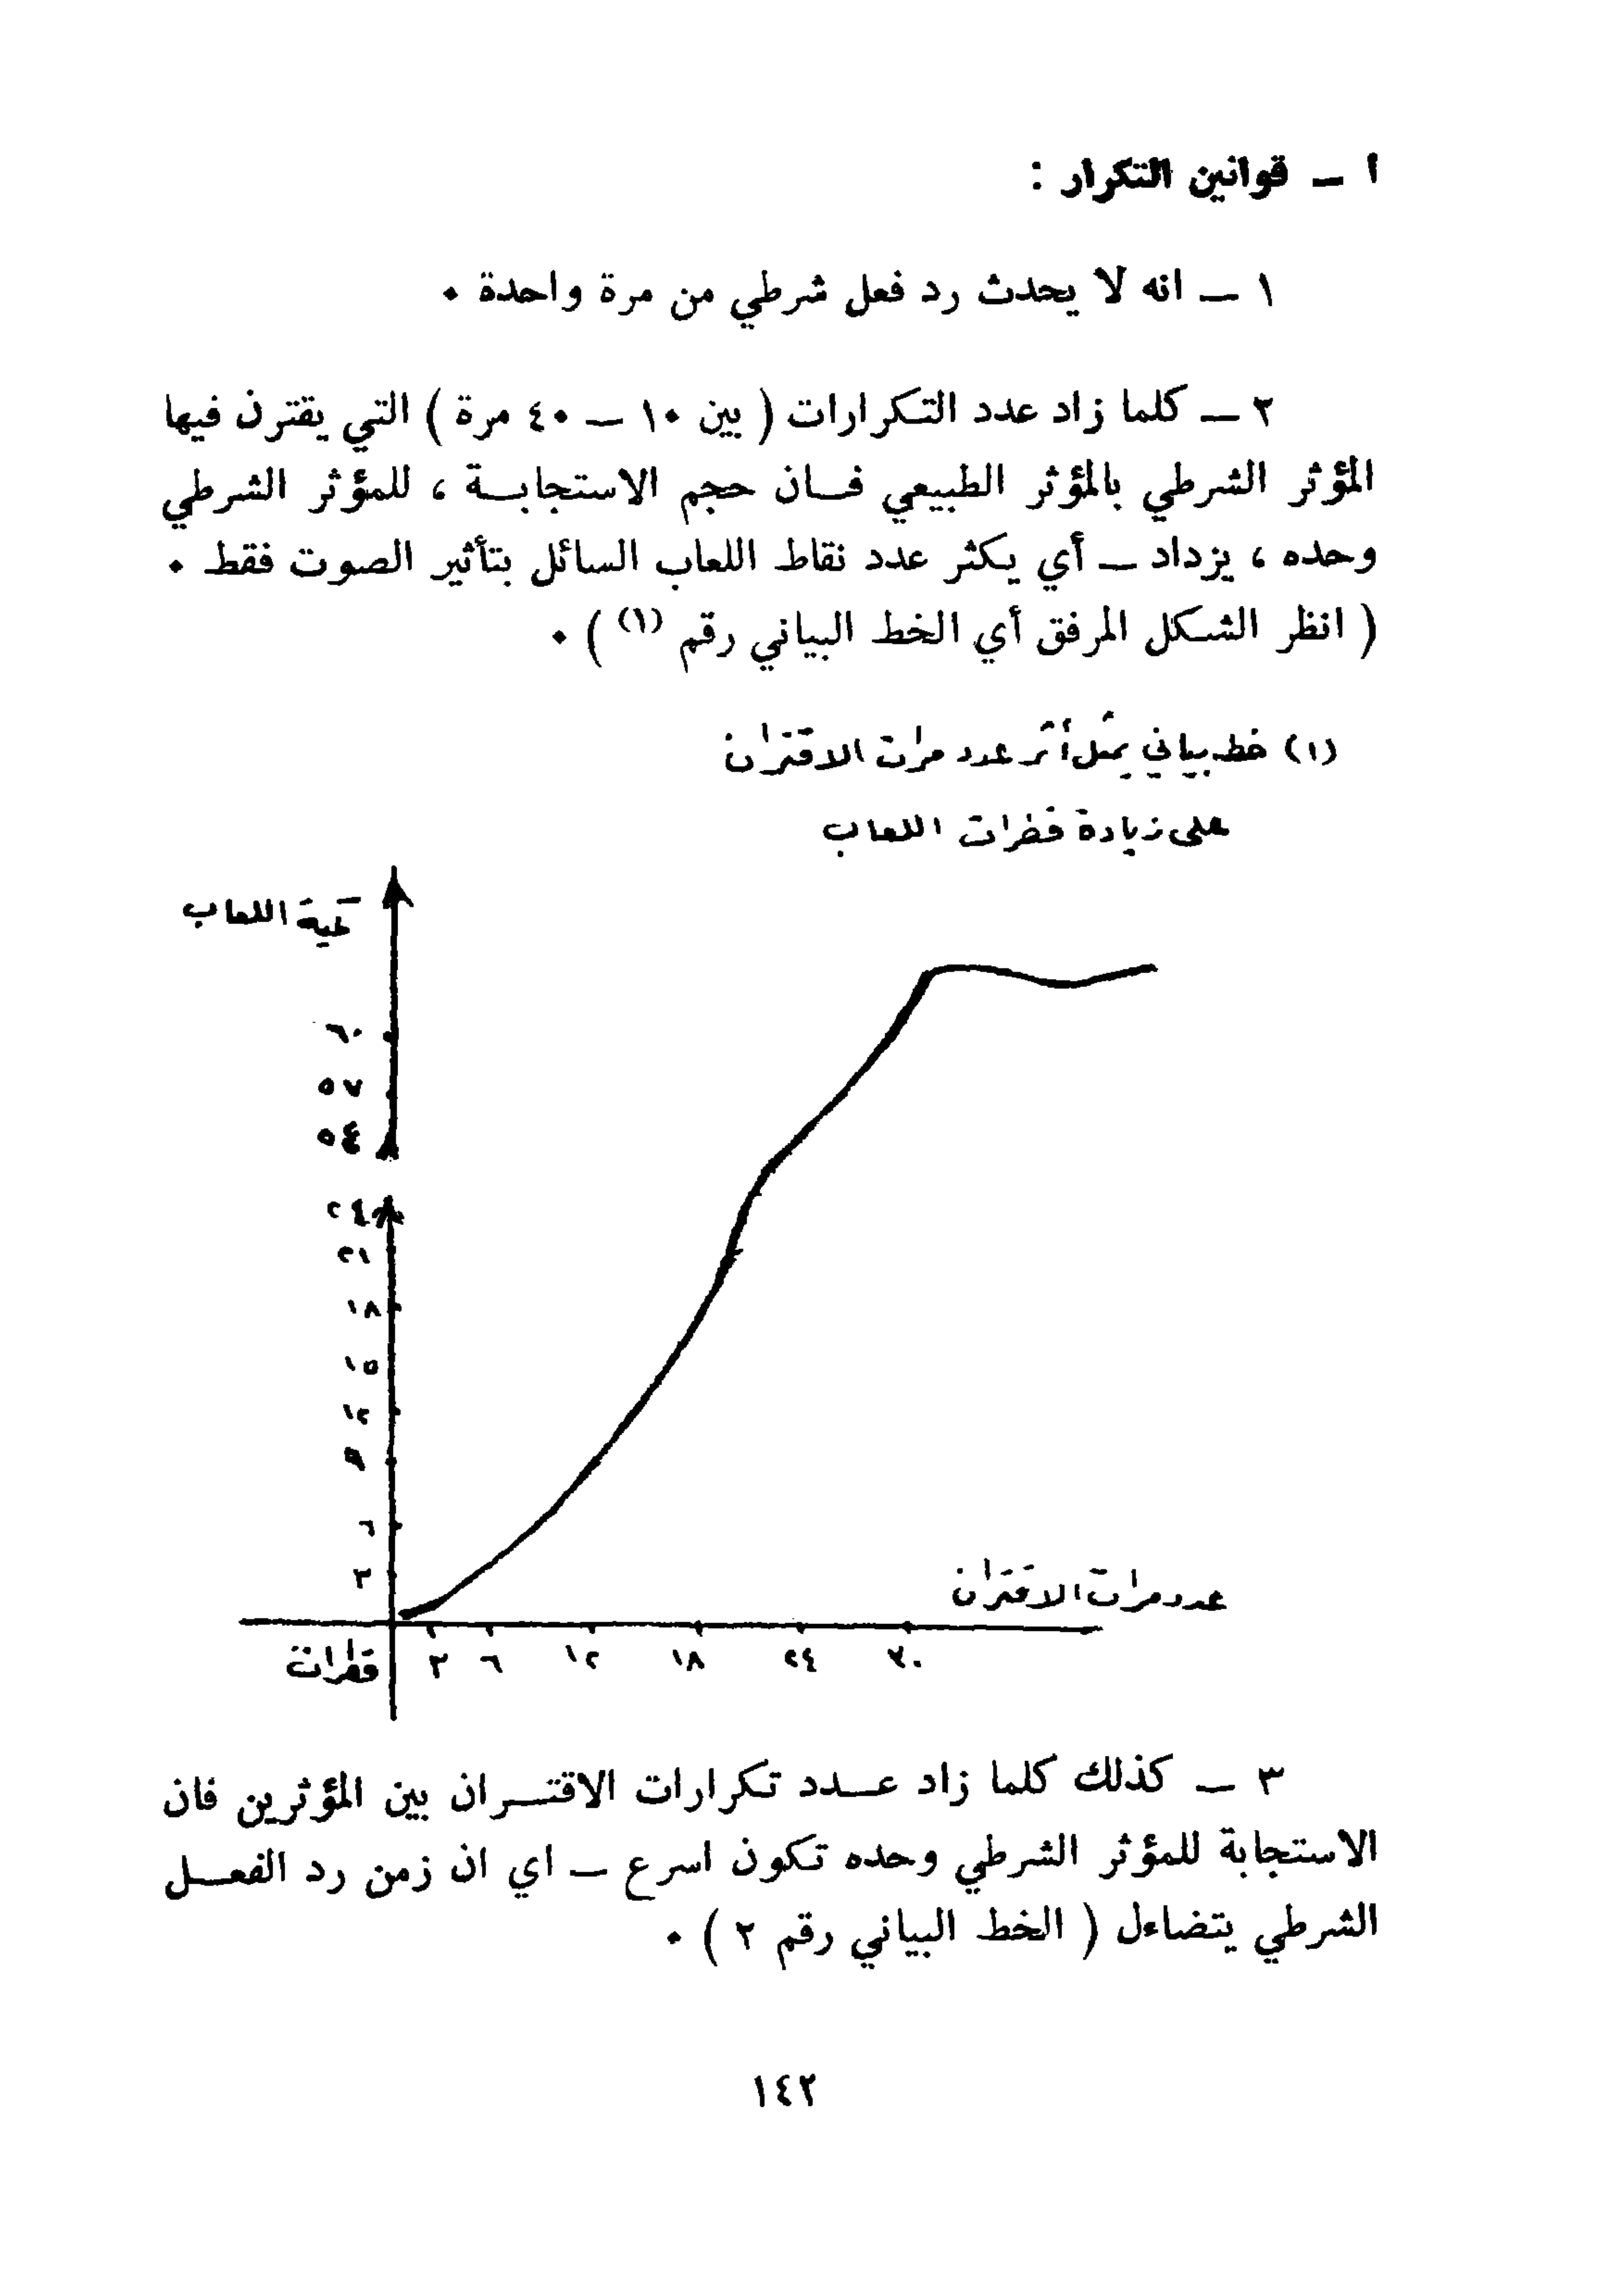 ا – قوانين التكرار :
١ – انه لا يحدث رد فعل شرطي من مرة واحدة ٠
٢ – كلما زاد عدد التكرارات ( بين ١٠ – ٤٠ مرة ) التي يقترن فيها
المؤثر الشرطي بالمؤثر الطبيعي فـان حجم الاستجابـة ، للمؤثر الشرطي
وحده ، يزداد – أي يكثر عدد نقاط اللعاب السائل بتأثير الصوت فقط ٠
( انظر الشكل المرفق أي الخط البياني رقم (١) ) ٠
(١) خط بياني يمثل أثر عدد مرات الاقتران
على زيادة قطرات اللعاب
كمية اللعاب
٦٠
٥٧
٥٤
٢٤
٢١
١٨
١٥
١٢
٩
٦
٣
عدد مرات الاقتران
قطرات ٣ ٦ ١٢ ١٨ ٢٤ ٣٠
٣ – كذلك كلما زاد عـدد تكرارات الاقتـران بين المؤثرين فان
الاستجابة للمؤثر الشرطي وحده تكون اسرع – اي ان زمن رد الفعـل
الشرطي يتضاءل ( الخط البياني رقم ٢ ) ٠
١٤٢